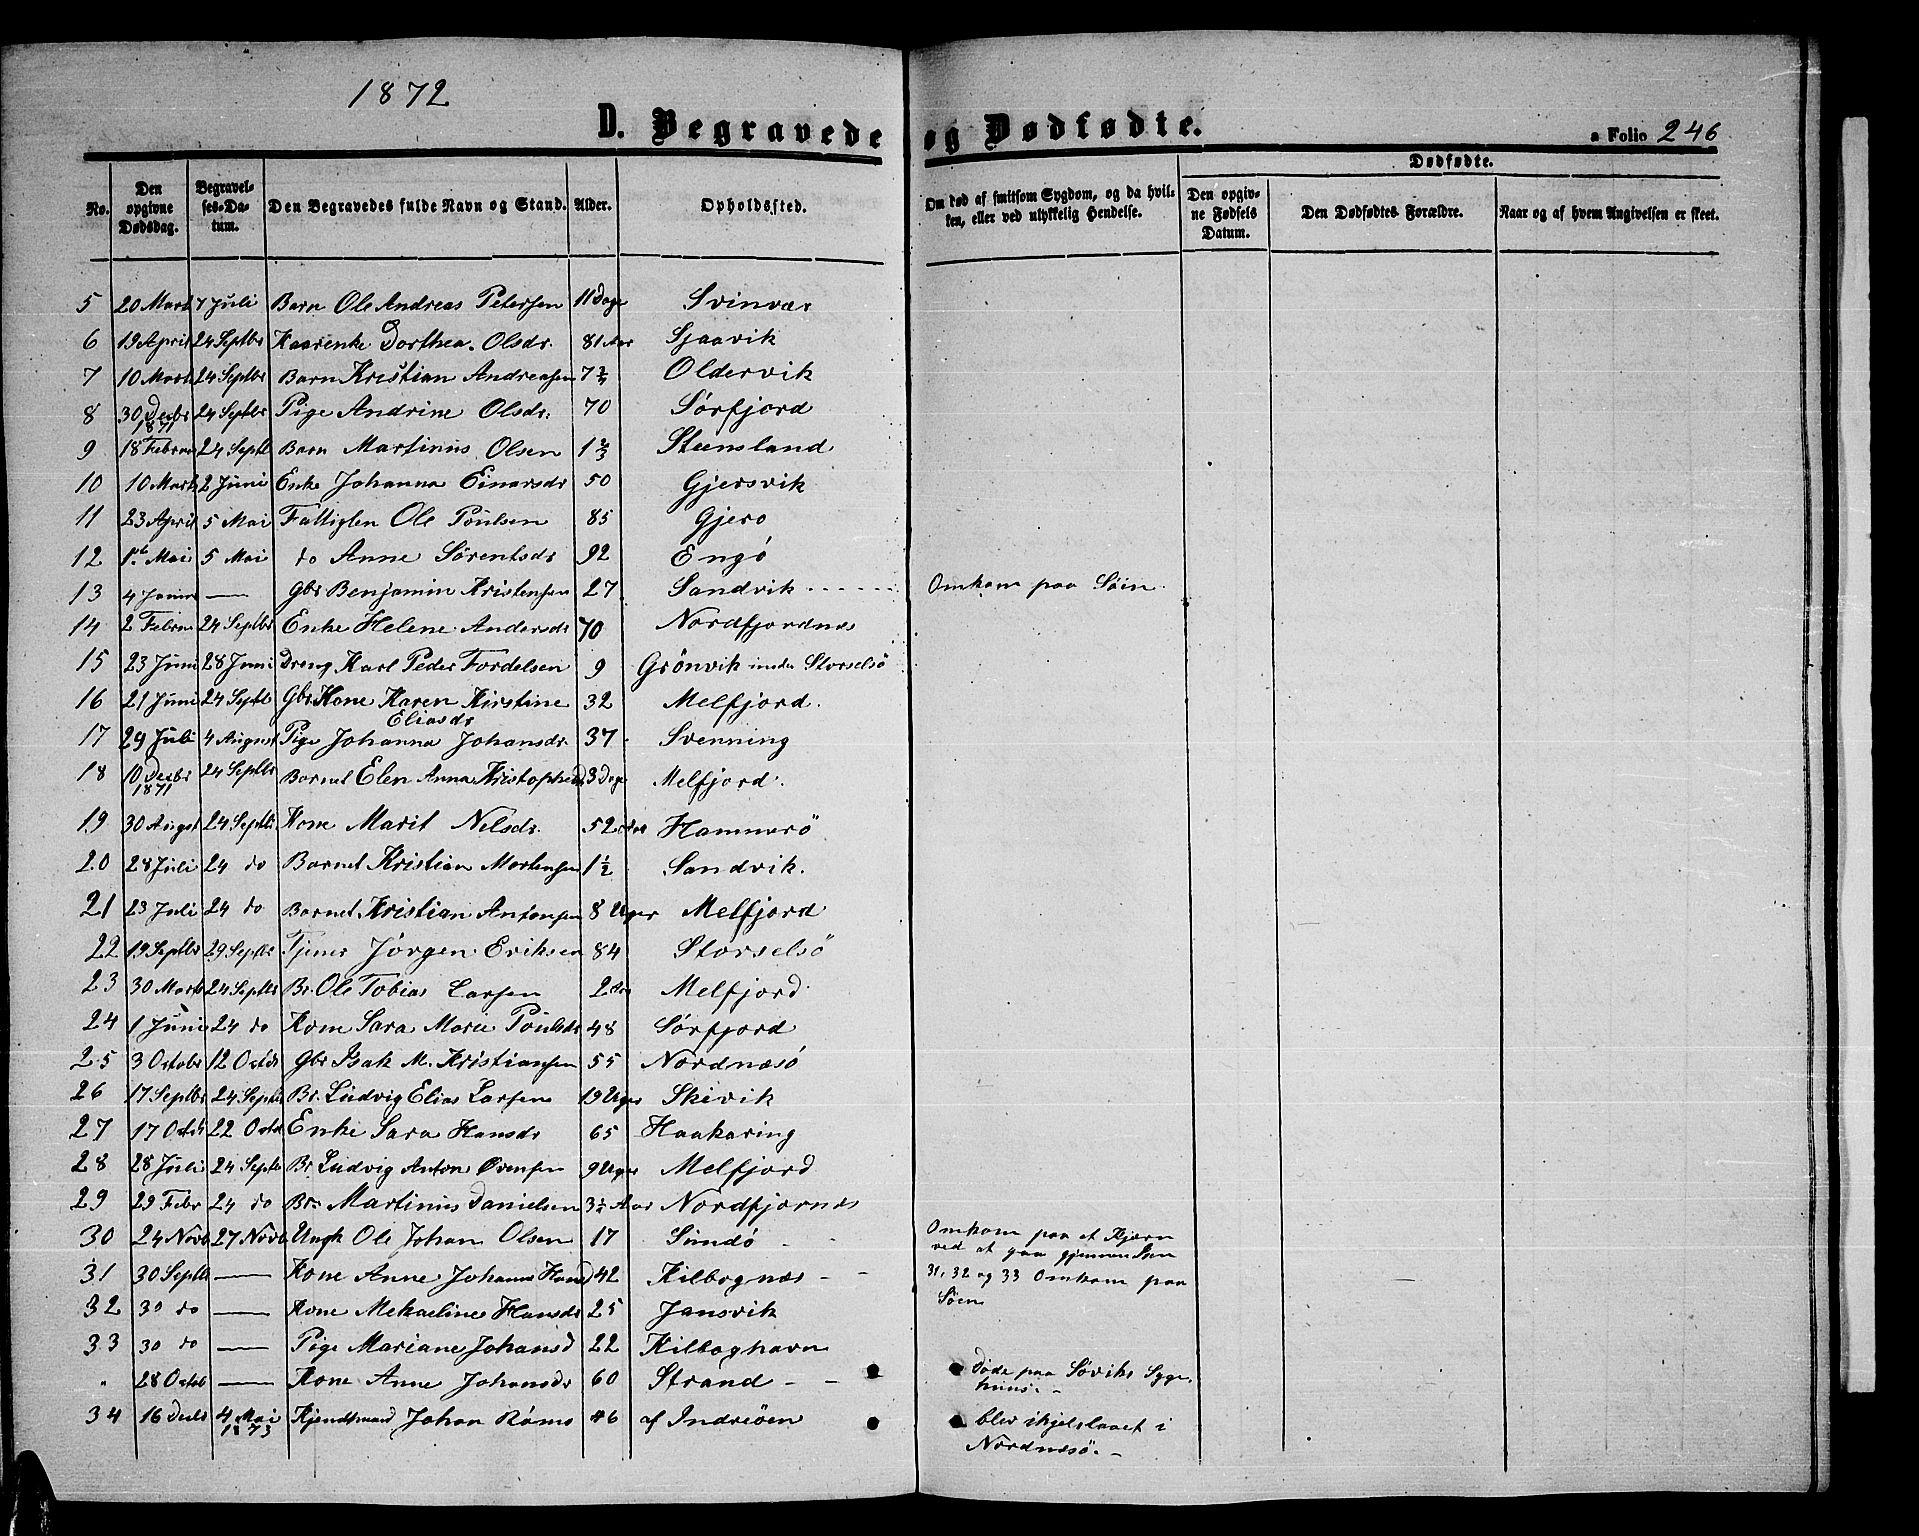 1872
D. Begravede og Dødfødte.
a Folio 246
No.
Den opgivne Dødsdag.
Begravelses-Datum.
Den Begravedes fulde Navn og Stand.
Alder.
Opholdssted.
Om død af smitsom Sygdom, og da hvilken, eller ved ulykkelig Hendelse.
Dødfødte.
Den opgivne Fødsels Datum.
Den Dødfødtes Forældre.
Naar og af hvem Angivelsen er skeet.
5 20 Marts 7 Juli Barn Ole Andreas Petersen 11 Dage Svinvær
6 19 April 24 Septbr Kaarenke Dorthea Olsdr. 81 Aar Sjaavik
7 10 Marts 24 Septbr Barn Kristian Andreasen 7 Oldervik
8 30 Decbr 1871 24 Septbr Pige Andrine Olsdr. 70 Sörfjord
9 18 Februar 24 Septb Barn Martinus Olsen 1 2/3 Steensland
10 10 Marts 2 Juni Enke Johanna Einarsdr 50 Gjersvik
11 23 April 5 Mai Fattiglem Ole Poulsen 85 Gjerö
12 1ste Mai 5 Mai do Anne Sörentsdr 92 Engö
13 4 Januar — Gbr Benjamin Kristensen 27 Sandvik - - - - - Omkom paa Söen
14 2 Februar 24 Septbr Enke Helene Andersdr 70 Nordfjordnæs
15 23 Juni 28 Juni Dreng Karl Peder Fordelsen 9 Grönvik under Storselsö
16 21 Juni 24 Septb Gbr Kone Karen Kirstine Eliasdr 32 Melfjord.
17 29 Juli 4 August Pige Johanna Johansdr. 37 Svenning
18 10 Decbr 1871 24 Septbr Barnet Elen Anna Kristophersd 3 Dage Melfjord.
19 30 August 24 Septb Kone Marit Nelsdr. 52 Aar Hammerö
20 28 Juli 24 do Barnet Kristian Mortensen 1 1/2 Sandvik.
21 23 Juli 24 do Barnet Kristian Antonsen 8 Uger Melfjord
22 19 Septbr 29 Septbr Tjener Jörgen Eriksen 84 Storselsö
23 30 Marts 24 Septbr Br. Ole Tobias Larsen 2 Aar Melfjord
24 1 Juni 24 do Kone Sara Marie Poulsdr 48 Sörfjord
25 3 Octobr 12 Octbr Gbr Isak M. Kristiansen 55 Nordnæsö
26 17 Septbr 24 Septbr Br. Ludvig Elias Larsen 19 Uger Skivik
27 17 Octb 22 Octb Enke Sara Hansdr 65 Haakaring
28 28 Juli 24 Septb Br Ludvig Anton Ovensen 9 Uger Melfjord
29 29 Febr 24 do Brn Martinus Danielsen 3 1/2 Aar Nordfjornæs
30 24 Novb 27 Novb Ungk Ole Johan Olsen 17 Sundö - - Omkom paa et Kjærn
ved at gaa gjennem Isen
31 30 Septb — Kone Anne Johanna Hansd 42 Kilbognæs - - 31, 32 og 33 Omkom paa
Söen
32 30 do — Kone Mekaeline Hansdr 25 Jansvik
33 30 do — Pige Mariane Johansd 22 Kilboghavn
" 28 Octob — Kone Anne Johansdr 60 Strand - - döde paa Söviks Syge
huus. -
34 16 Decbr 4 Mai 1873 Kjendtmand Johan Römo 46 af Inderöen blev ihjelslaaet i
Nordnæsö. -